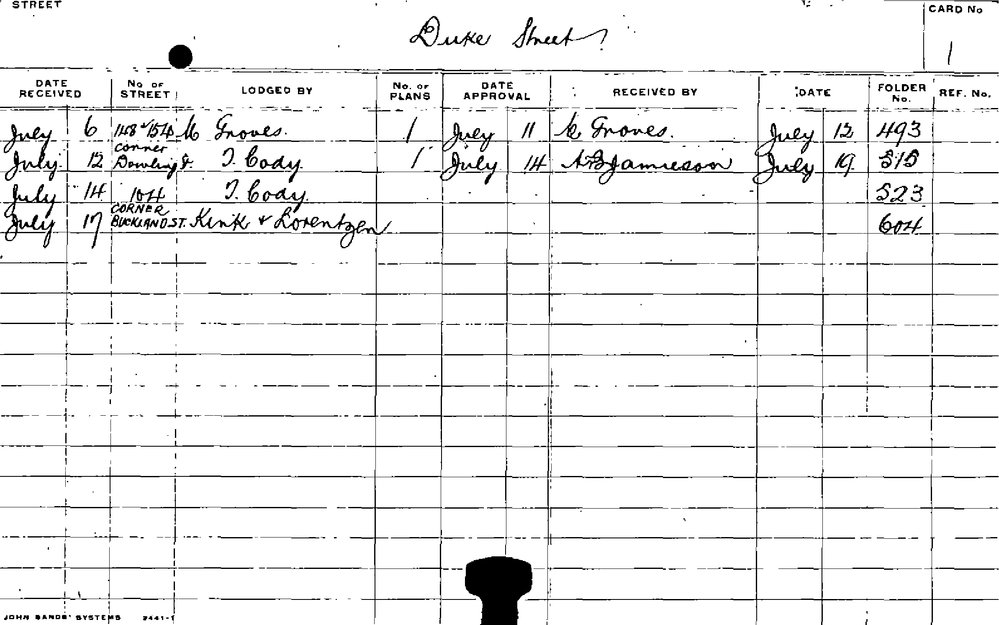 STREET
Duke Street
CARD No
1
DATE RECEIVED No OF STREET LODGED BY No. OF PLANS DATE APPROVAL RECEIVED BY DATE FOLDER No. REF. No.
July 6 148 & 154 Groves. 1 July 11 Groves. July 12 493
July 12 corner Dowling St. T. Cody. 1 July 14 Jamieson July 19 515
July 14 104 T. Cody. 523
July 17 CORNER BUCKLAND ST. Kink & Lorentzen 604
JOHN SANDS' SYSTEMS 2441-1